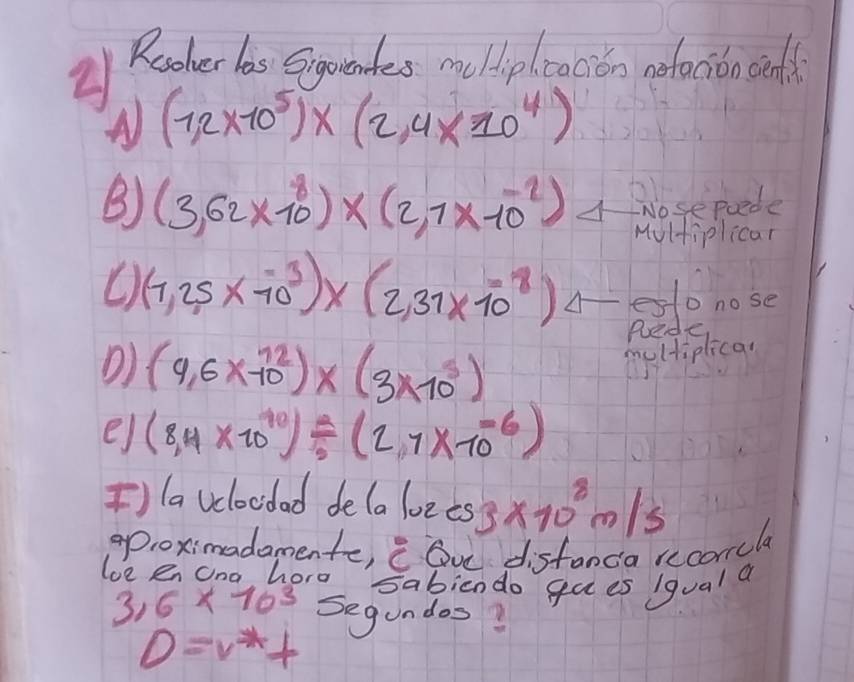 2) Resolver las Siguientes multiplicación notación cientifi
A) (1,2 × 10⁵) × (2,4 × 10⁴)
B) (3,62 × 10⁸) × (2,1 × 10⁻²) ◁— No se puede
Multiplicar
C) (1,25 × 10⁻³) × (2,31 × 10⁻⁸) ◁— esto no se
Puede
multiplicar
D) (9,6 × 10⁻¹²) × (3 × 10⁵)
e) (8,4 × 10⁻¹⁰) ÷ (2,1 × 10⁻⁶)
I) la velocidad de la luz es 3 × 10⁸ m/s
aproximadamente, ¿ Que distancia recorre la
luz en una hora sabiendo que es igual a
3,6 × 10³ segundos ?
D = v * t